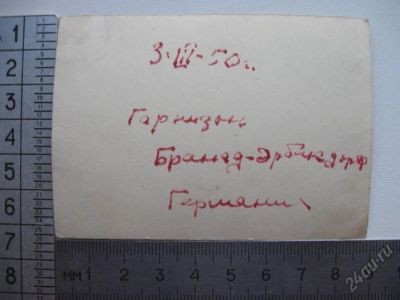 3-III-50г.
Гарнизон
Бранд-Эрбисдорф
Германия
1
2
3
4
5
6
7
8
ММ 1 2 3 4 5 6 7 8 9
24au.ru